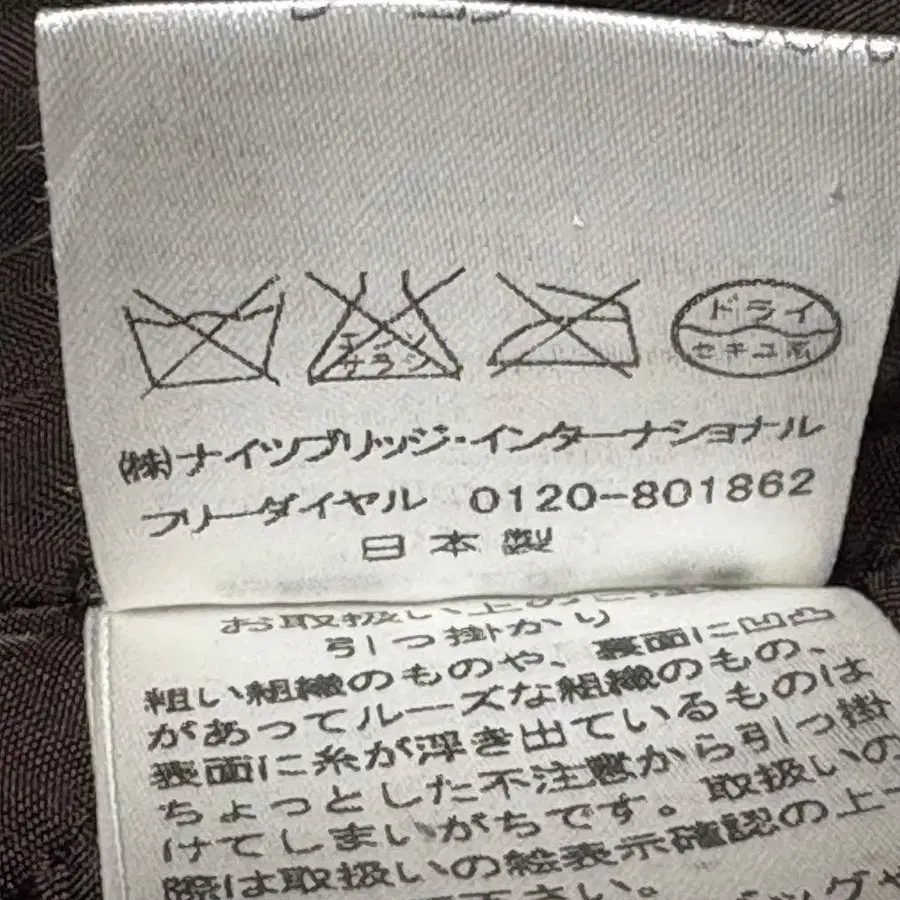 エンソ
サラシ
ドライ
セキユ系
(株)ナイツブリッジ・インターナショナル
フリーダイヤル 0120-801862
日本製
お取扱い上のご注
引っ掛かり
粗い組織のものや、裏面に凹凸
があってルーズな組織のもの、
裏面に糸が浮き出ているものは
ちょっとした不注意から引っ掛
けてしまいがちです。取扱いの
際は取扱いの絵表示確認の上
下さい。